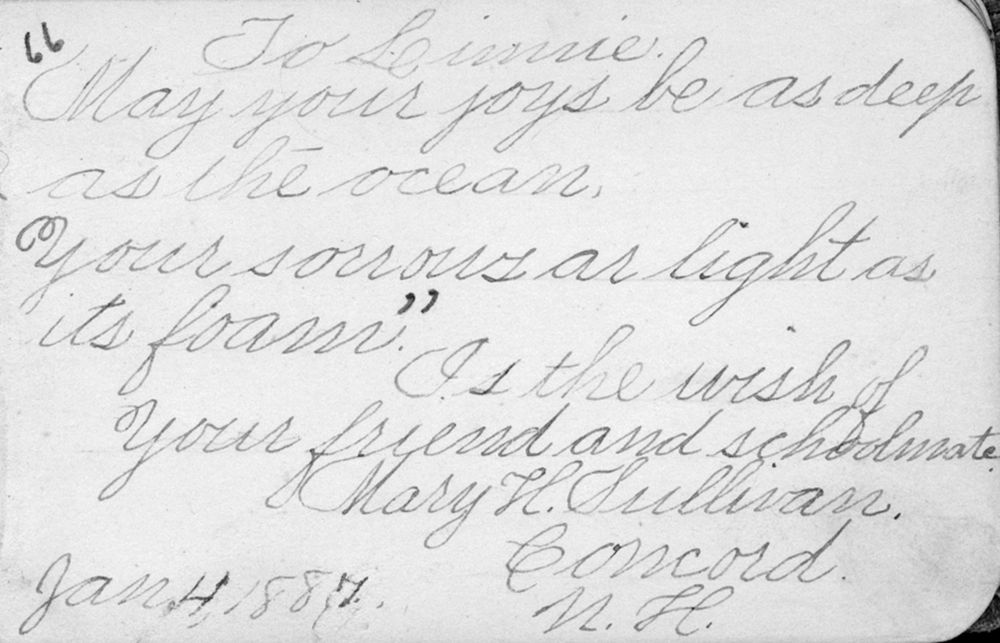 To Linnie.
"May your joys be as deep
as the ocean,
Your sorrows as light as
its foam."
Is the wish of
Your friend and schoolmate
Mary H. Sullivan.
Concord.
Jan. 4, 1887.
N. H.